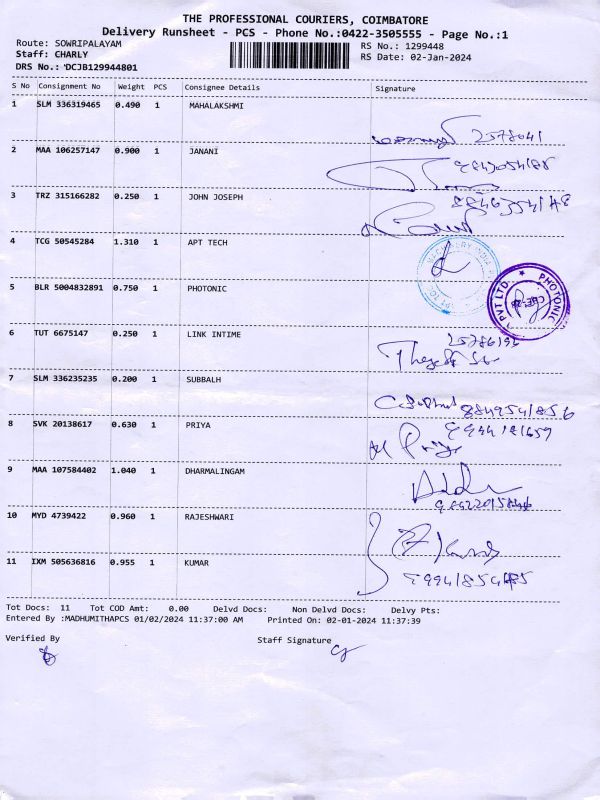 THE PROFESSIONAL COURIERS, COIMBATORE
Delivery Runsheet - PCS - Phone No.:0422-3505555 - Page No.:1
Route: SOWRIPALAYAM RS No.: 1299448
Staff: CHARLY RS Date: 02-Jan-2024
DRS No.: DCJB129944801
S No Consignment No Weight PCS Consignee Details Signature
1 SLM 336319465 0.490 1 MAHALAKSHMI
2578041
2 MAA 106257147 0.900 1 JANANI
3 TRZ 315166282 0.250 1 JOHN JOSEPH
4 TCG 50545284 1.310 1 APT TECH
MACHINERY INDIA
5 BLR 5004832891 0.750 1 PHOTONIC
PHOTONIC PVT LTD
6 TUT 6675147 0.250 1 LINK INTIME
7 SLM 336235235 0.200 1 SUBBALH
8849541856
8 SVK 20138617 0.630 1 PRIYA
9 MAA 107584402 1.040 1 DHARMALINGAM
10 MYD 4739422 0.960 1 RAJESHWARI
11 IXM 505636816 0.955 1 KUMAR
Tot Docs: 11 Tot COD Amt: 0.00 Delvd Docs: Non Delvd Docs: Delvy Pts:
Entered By :MADHUMITHAPCS 01/02/2024 11:37:00 AM Printed On: 02-01-2024 11:37:39
Verified By Staff Signature